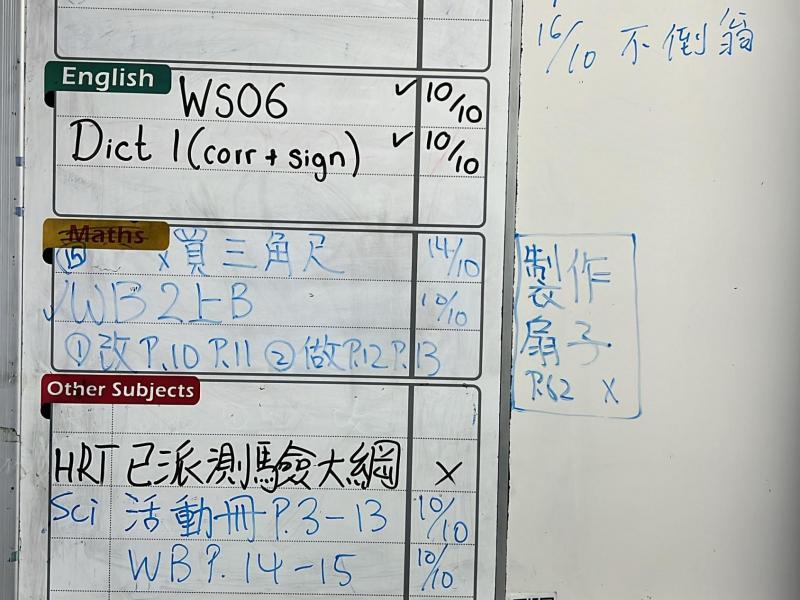 16/10 不倒翁
English
WS06 ✓10/10
Dict 1 (corr + sign) ✓10/10
Maths
⑮ x 買三角尺 14/10
✓WB 2上B 10/10
①改P.10 P.11 ②做P.12 P.13
製作
扇子
P.62 X
Other Subjects
HRT 已派測驗大綱 x
Sci 活動冊 P.3-13 10/10
WB P.14-15 10/10